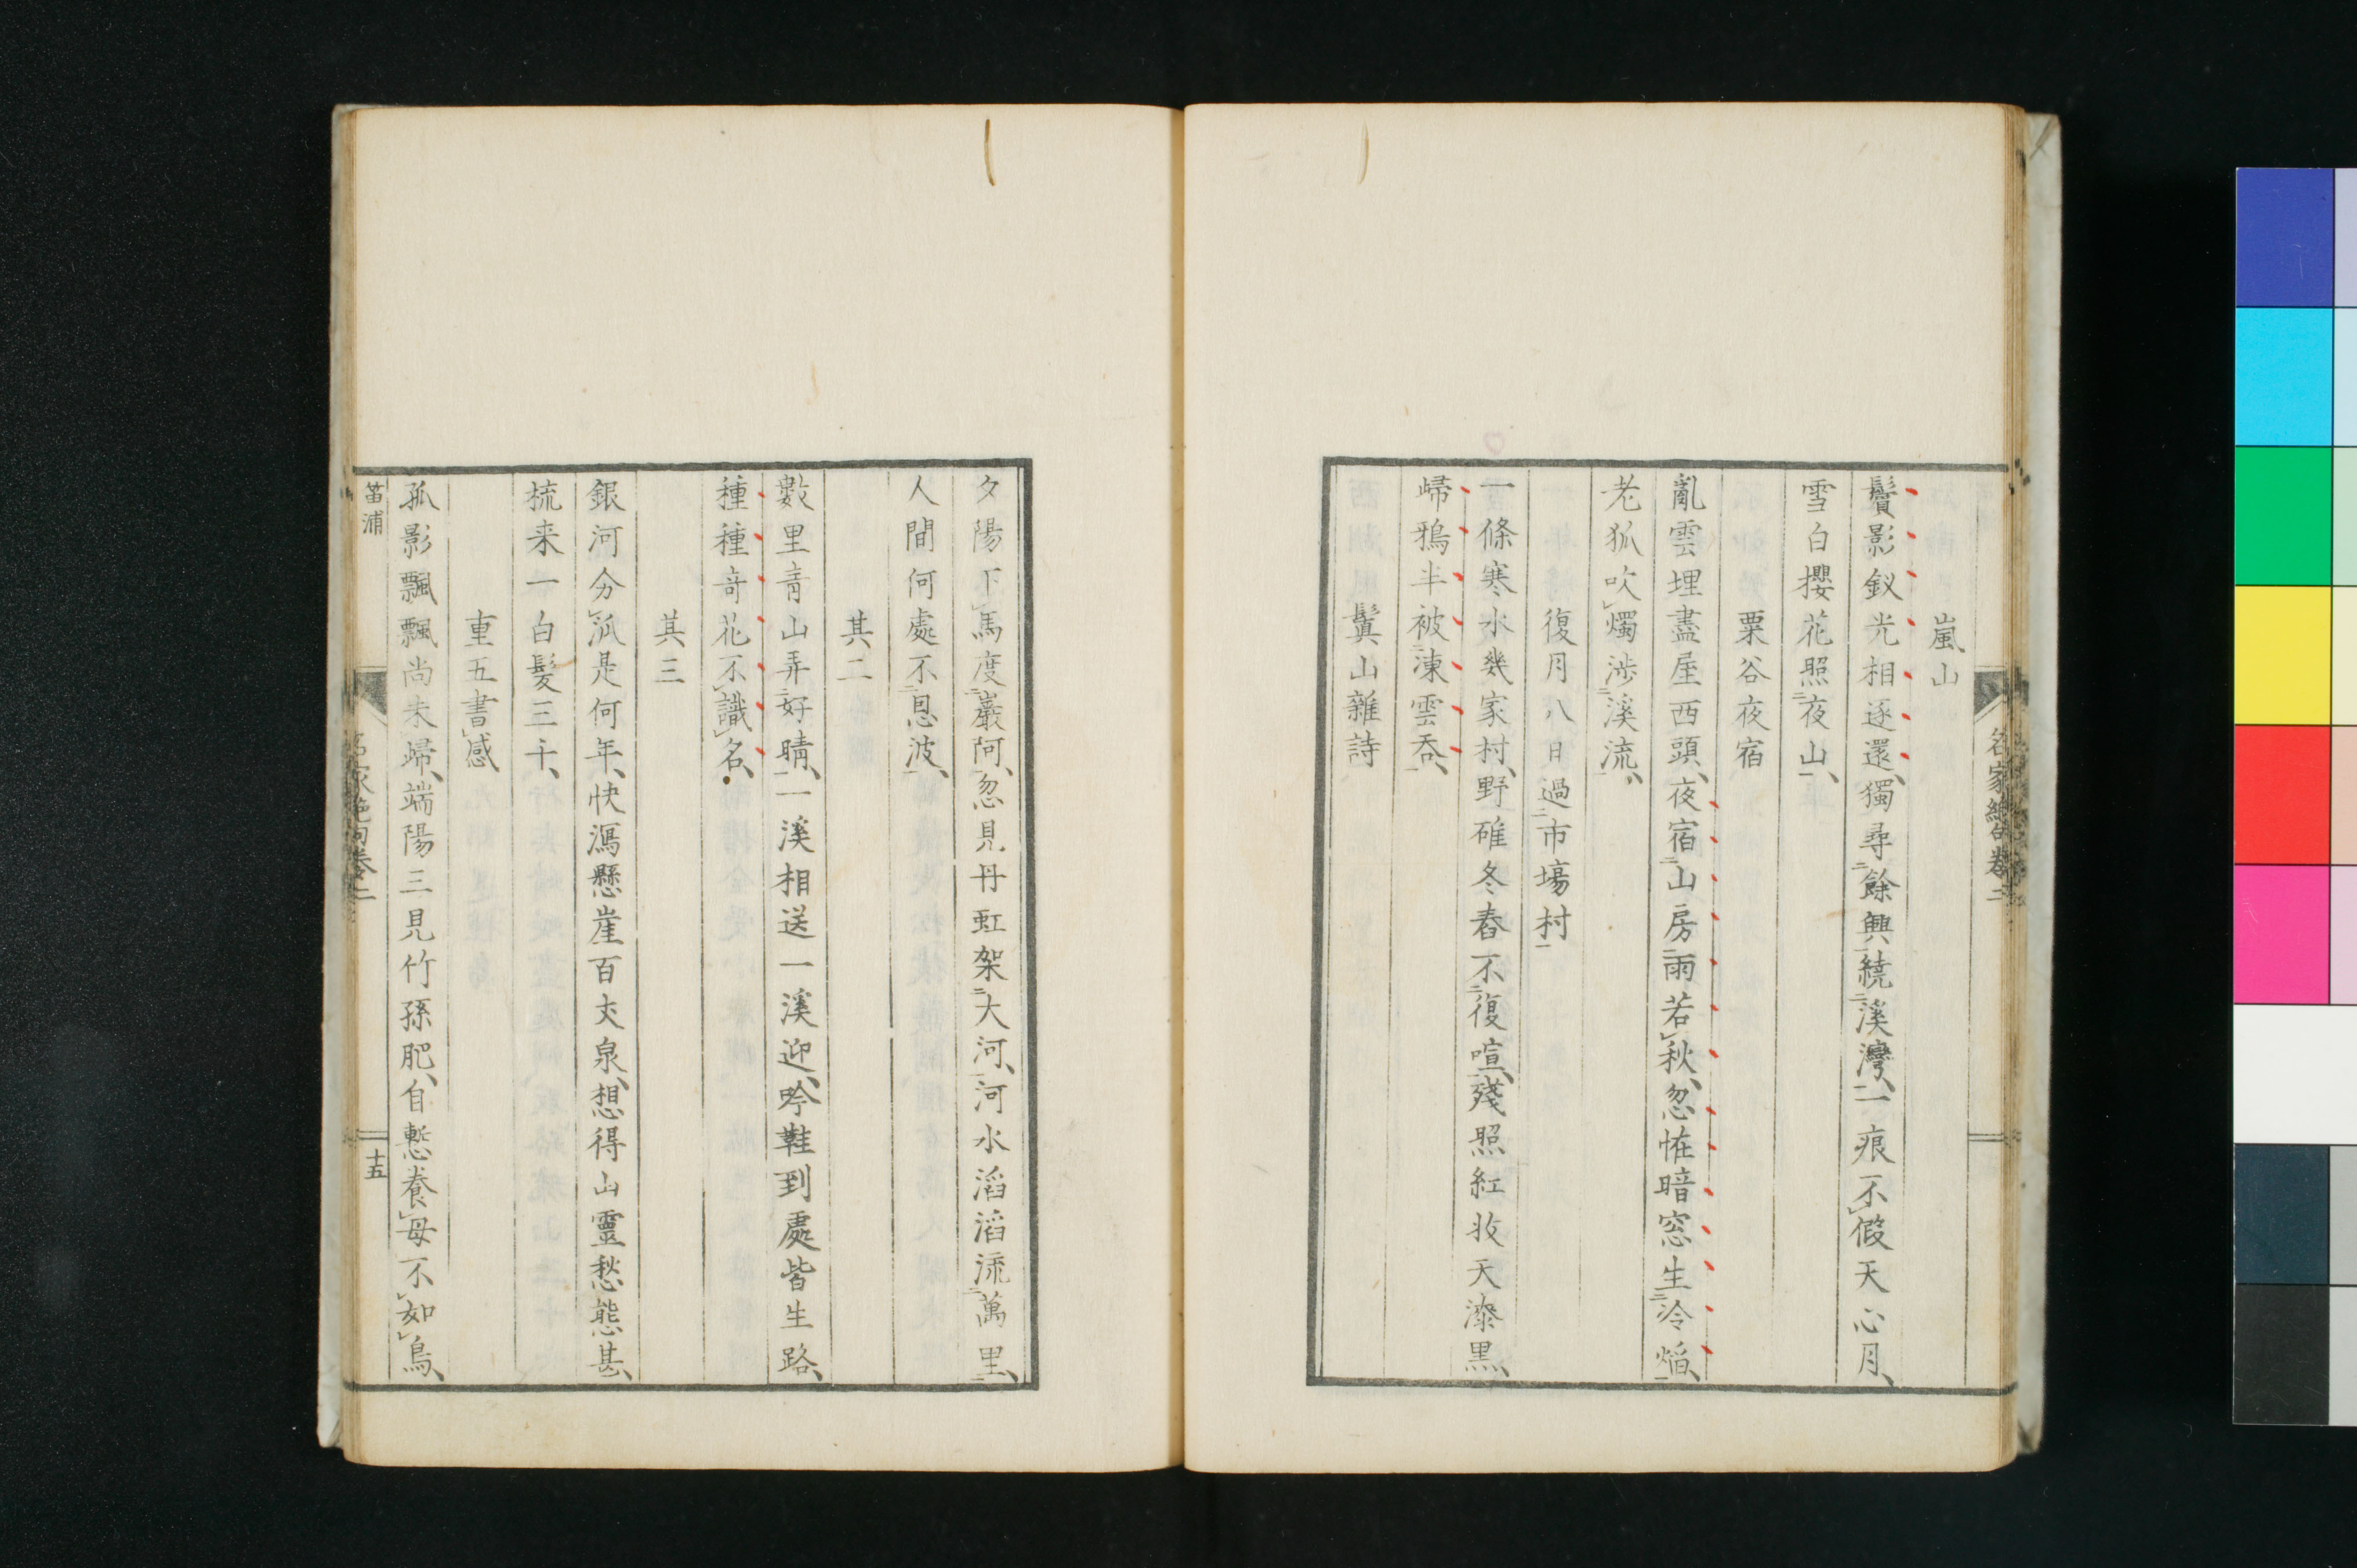 嵐山
鬢影釵光相逐還獨尋餘興繞溪灣一痕不假天心月
雪白櫻花照夜山
粟谷夜宿
亂雲埋盡屋西頭夜宿山房雨若秋忽恠暗窓生冷焰
老狐吹燭渉溪流
復月八日過市塲村
一條寒水幾家村野碓冬舂不復喧殘照紅收天漆黒
歸鴉半被凍雲呑
鬟山雜詩
名家絶句卷二
夕陽下馬度巖阿忽見丹虹架大河河水滔滔流萬里
人間何處不息波
其二
數里青山弄好晴一溪相送一溪迎吟鞋到處皆生路
種種奇花不識名
其三
銀河分派是何年快瀉懸崖百丈泉想得山靈愁態甚
梳来一白髮三千
重五書感
孤影飄飄尚未歸端陽三見竹孫肥自慙養母不如烏
笛浦
名家絶句卷二
十五